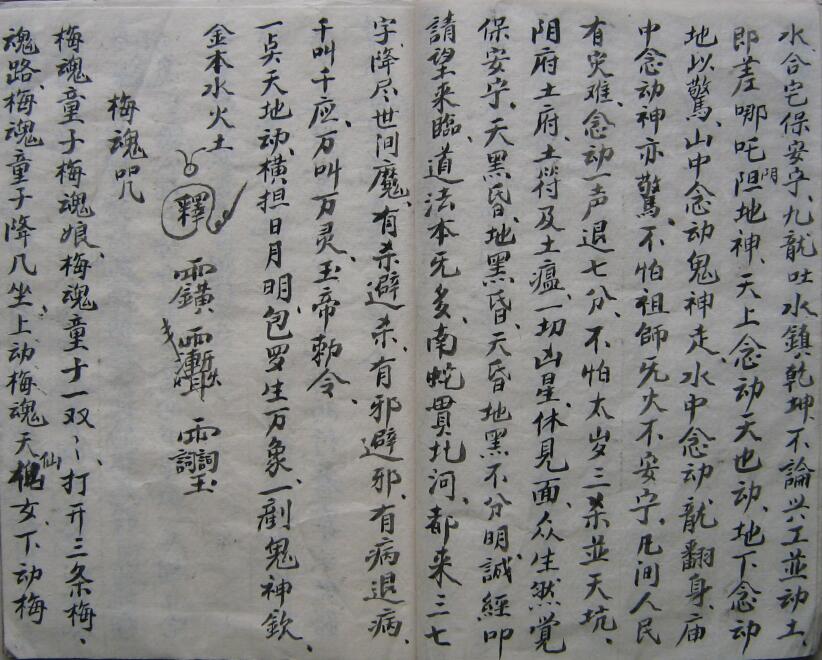 水、合宅保安宁、九龍吐水鎮乾坤、不論兴工並动土、
即差哪吒門阻地神、天上念动天也动、地下念动
地以驚、山中念动鬼神走、水中念动龍翻身、庙
中念动神亦驚、不怕祖師旡火不安宁、凡间人民
有灾难、念动一声退七分、不怕太岁三杀並天坑、
阴府土府、土符及土瘟、一切凶星、休見面、众生然覚
保安宁、天黑昏、地黑昏、天昏地黑不分明、誠經叩
請望来臨、道法本旡多、南蛇貫北河、都来三七
字、降尽世间魔、有杀避杀、有邪避邪、有病退病、
千叫千应、万叫万灵、玉帝勅令、
一点天地动、横担日月明、包罗生万象、一劃鬼神欽、
金本水火土
釋
梅魂咒
梅魂童子梅魂娘、梅魂童子一双〻、打开三条梅、
魂路、梅魂童子降几坐、上动梅魂天仙女、下动梅